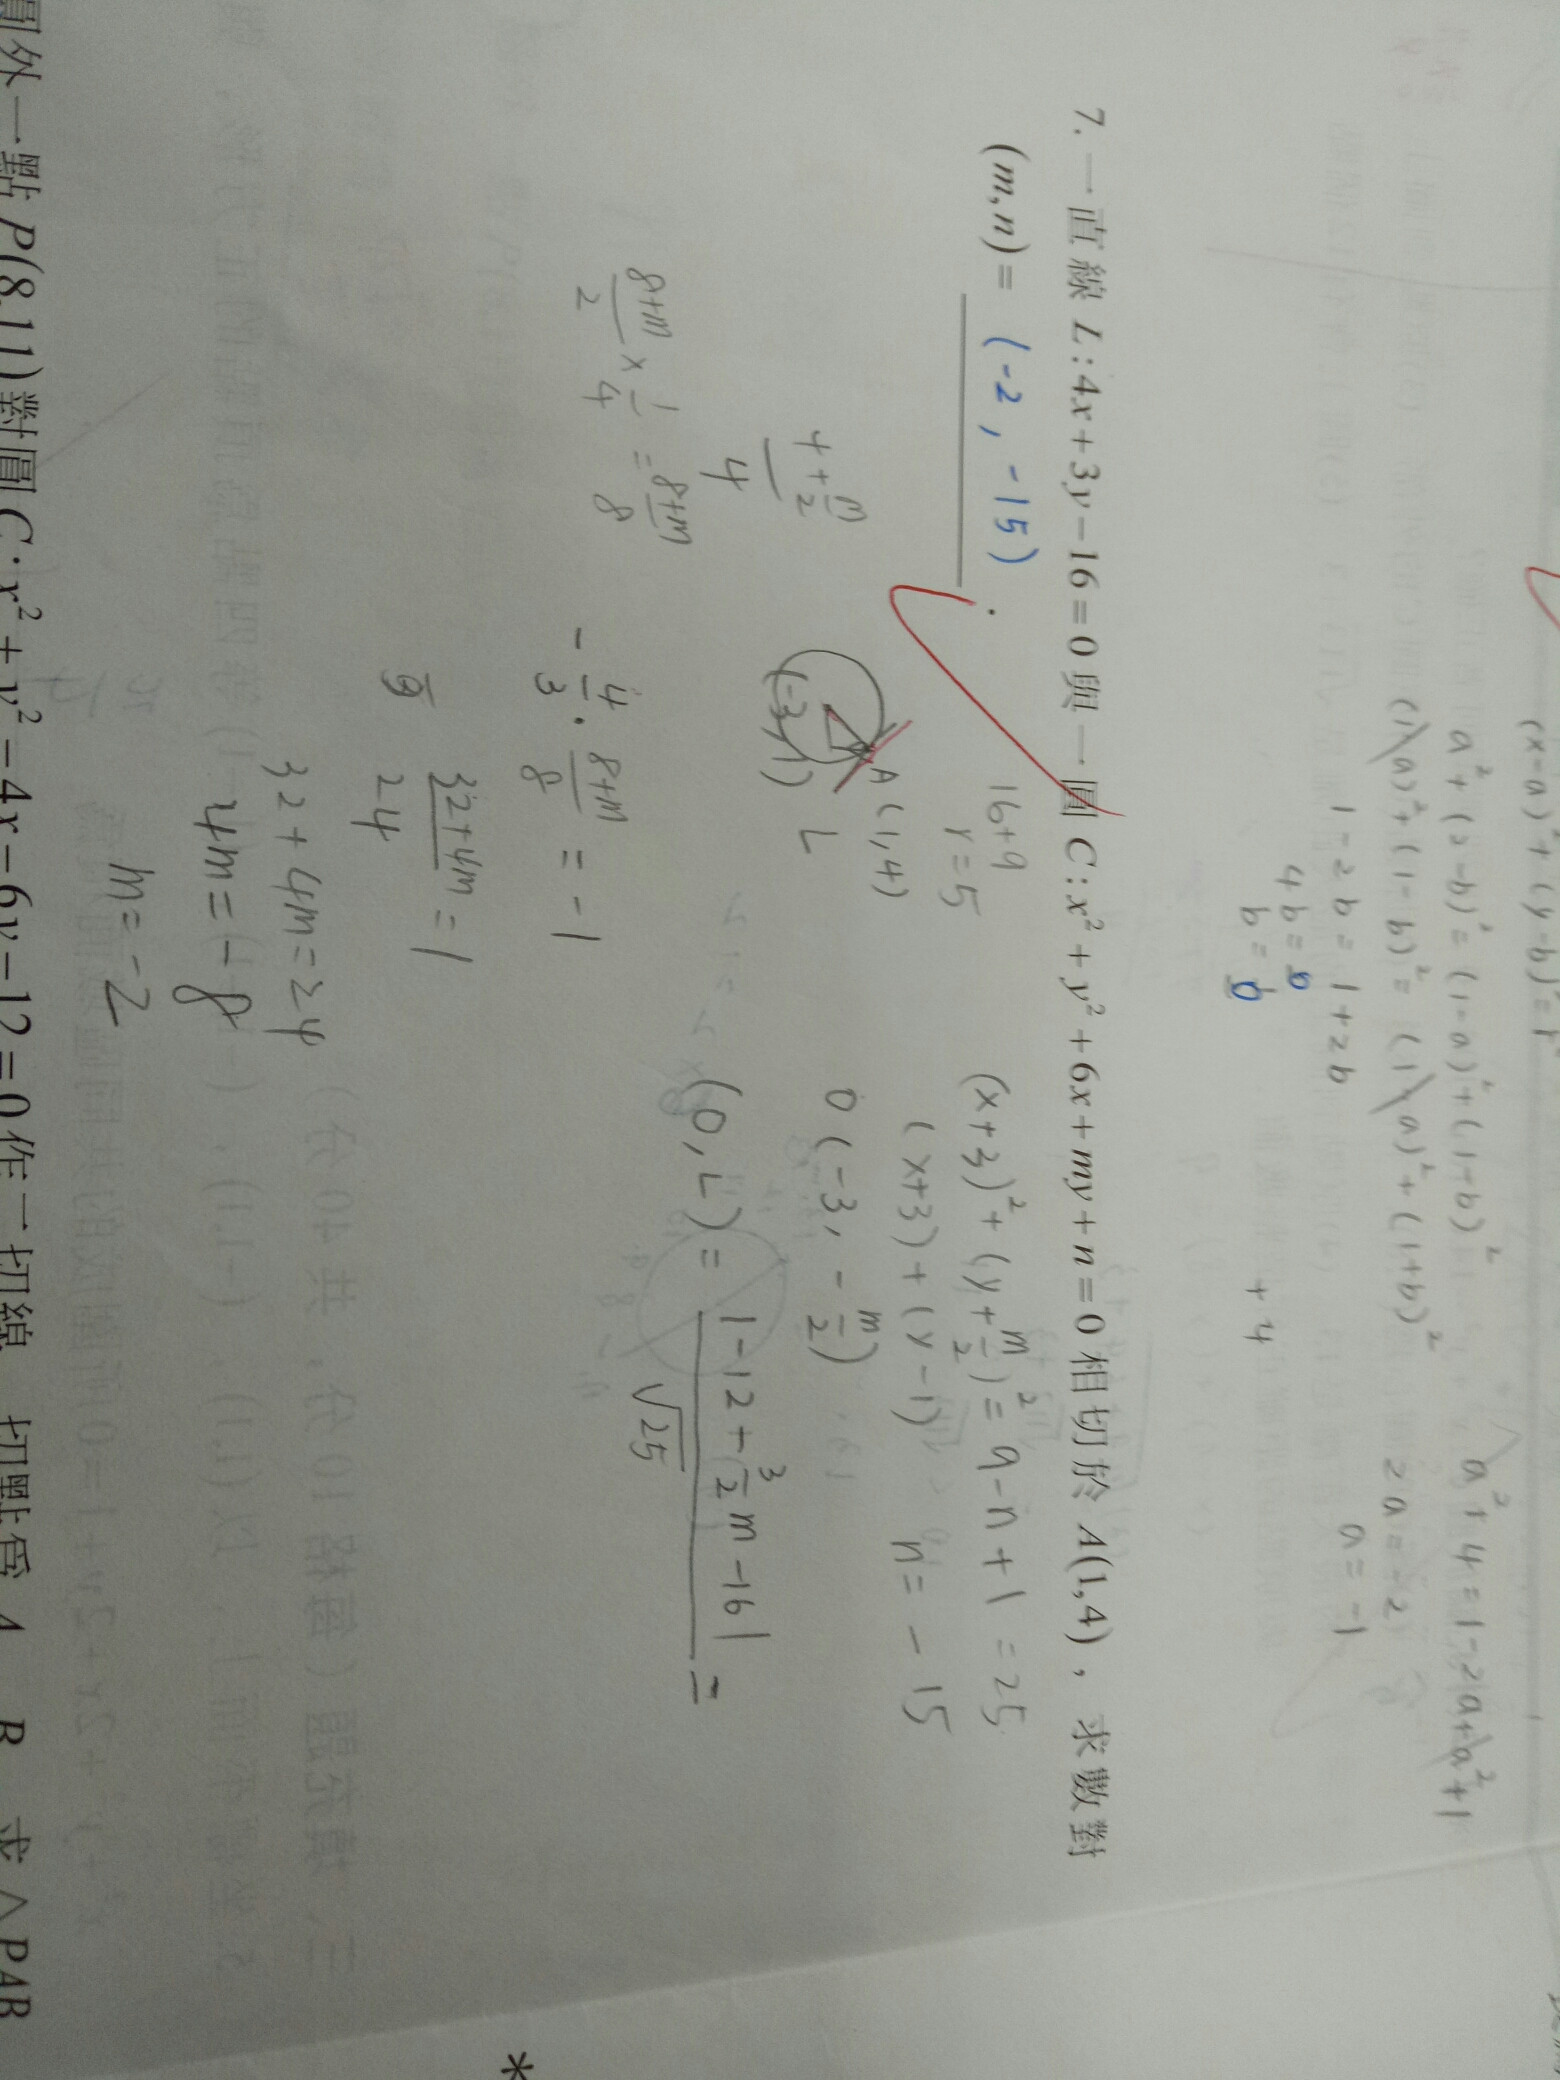 (x-a)²+(y-b)²=r²
a²+(2-b)²=(1-a)²+(1+b)²
a²+4=1-2a+a²+1
(1-a)²+(1-b)²=(1-a)²+(1+b)²
2a=-2
1-2b=1+2b
a=-1
4b=0
b=0
+4
7. 一直線 L:4x+3y-16=0 與一圓 C:x²+y²+6x+my+n=0 相切於 A(1,4)，求數對
(m,n)= (-2,-15) .
16+9
r=5
(x+3)²+(y+m/2)²=9-n+1=25
(x+3)+(y-1)
n=-15
A(1,4)
L
(-3,1)
O(-3,-m/2)
(4+m/2)/4
(O,L)=|-12+3/2m-16|/√25=
(8+m)/2×1/4=(8+m)/8
-4/3·(8+m)/8=-1
(32+4m)/24=1
32+4m=24
4m=-8
m=-2
圓外一點 P(8,11)對圓 C:x²+y²-4x-6y-12=0作二切線
求△PAB
*